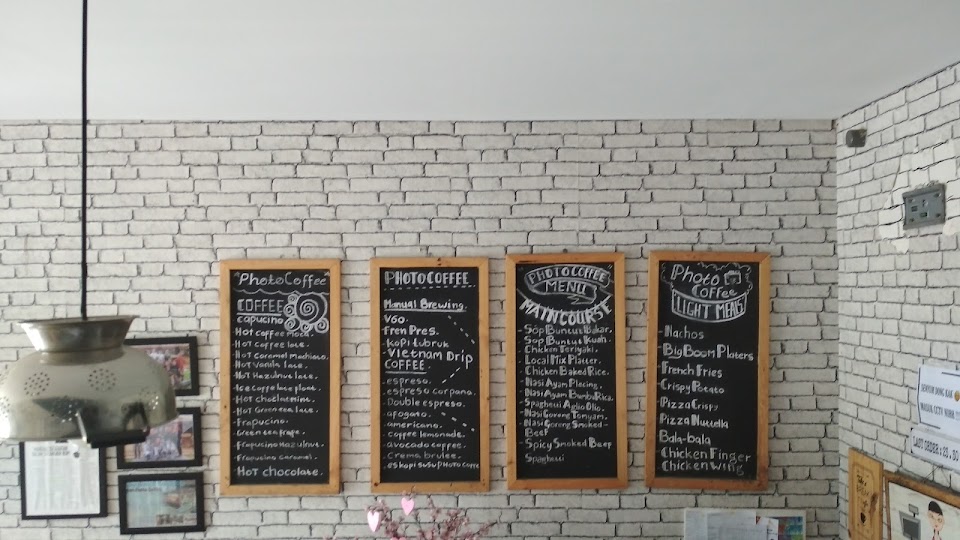 PhotoCoffee
COFFEE
capucino
Hot coffee moca.
HOT COFFEE late.
Hot Caramel machiato.
Hot Vanila late.
HOT Hazulnut late.
Hot Green tea late.
Frapucino.
Green tea frape.
Frapucino Hazulnut.
Frapucino caramel.
Hot chocolate.
PHOTOCOFFEE
Manual Brewing.
V60.
fren Pres.
kopi tubruk
-Vietnam Drip
COFFEE.
.espreso.
.espreso corpano.
Double espreso.
.apogato.
.americano.
.coffee lemonade.
.avocado coffee.
.Crema brulee.
.es kopi susu PHOTO COFFE
PHOTOCOFFEE
MENU
MAIN COURSE
-Sop Buntut Bakar.
-Sop Buntut Kuah.
-Chicken Teriyaki.
-Local Mix Platter.
-Chicken Baked Rice.
-Nasi Ayam Pelecing.
-Nasi Ayam Bumbu Rica.
-Spaghetti Aglio Olio.
-Nasi Goreng Tomyam.
-Nasi Goreng Smoked-
Beef
-Spicy Smoked Beef
Spaghetti
Photo
Coffee
LIGHT MEALS
-Nachos
-Big Boom Platers
-French Fries
-Crispy Potato
-Pizza Crispy
-Pizza Nutella
Bala-bala
-Chicken Finger
Chicken Wing
LAST ORDER : 23.30